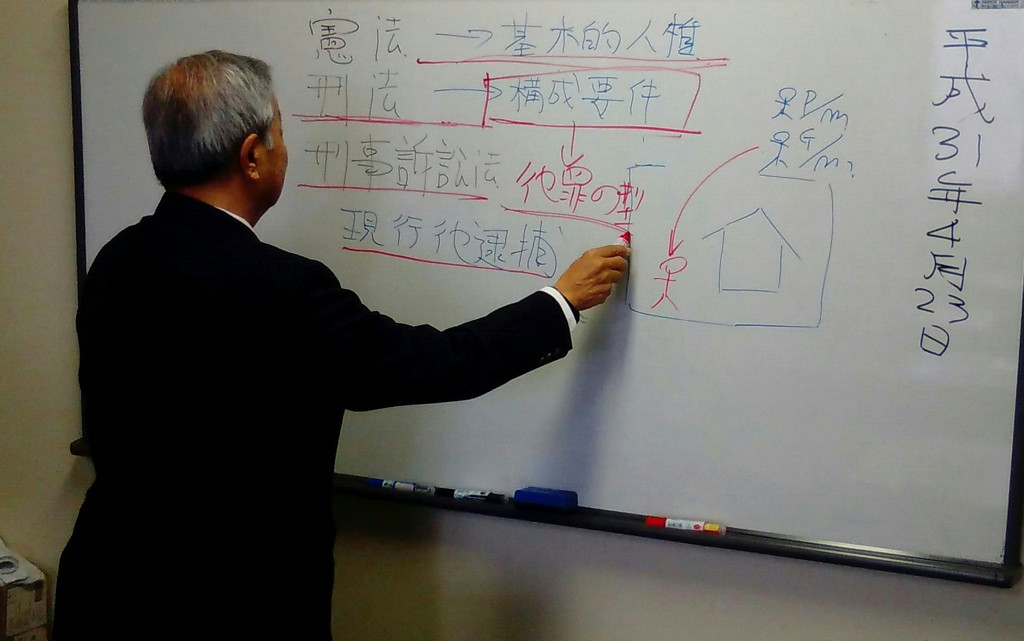 憲法 → 基本的人権
刑法 → 構成要件
刑事訴訟法
犯罪の型
現行犯逮捕
平成31年4月23日